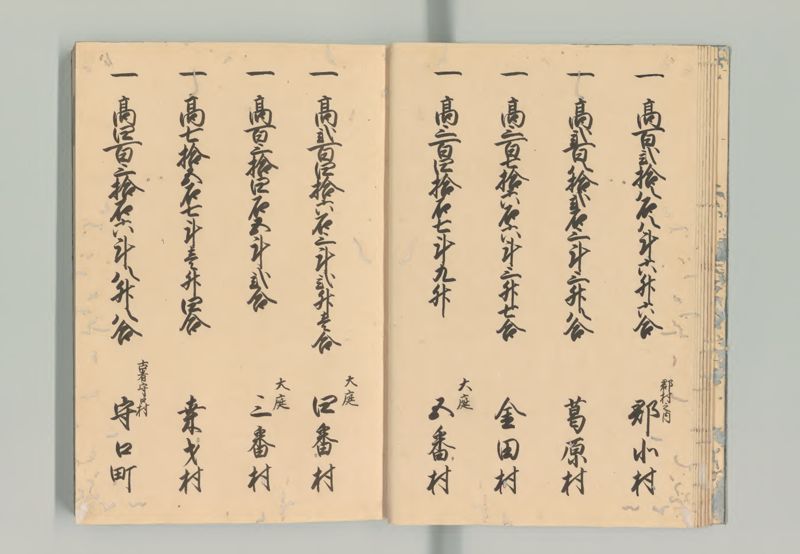 一 高百弐拾八石八斗六升六合
郡村之内
郡小村
一 高弐百八拾弐石三斗三升八合
葛原村
一 高三百七拾六石六斗三升七合
金田村
一 高三百四拾石七斗九升
大庭
五番村
一 高弐百四拾六石三斗弐升壱合
大庭
四番村
一 高百三拾四石五斗弐合
大庭
三番村
一 高七拾五石七斗壱升四合
桒才村
一 高四百三拾石六斗八升八合
古者守口村
守口町